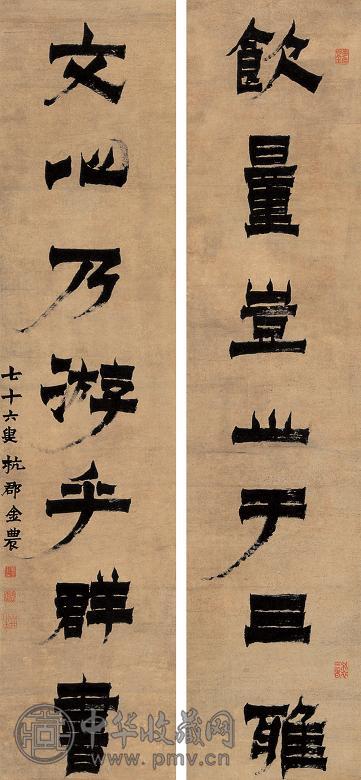 飲量豈止于三雅
文心乃游乎群書
七十六叟杭郡金農
中华收藏网
www.pmv.cn